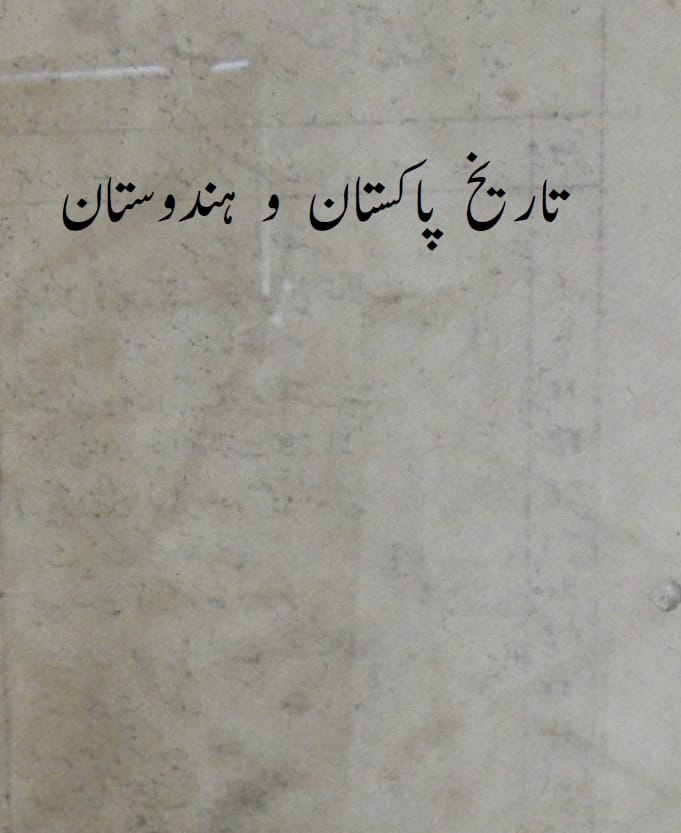 تاریخ پاکستان و ہندوستان